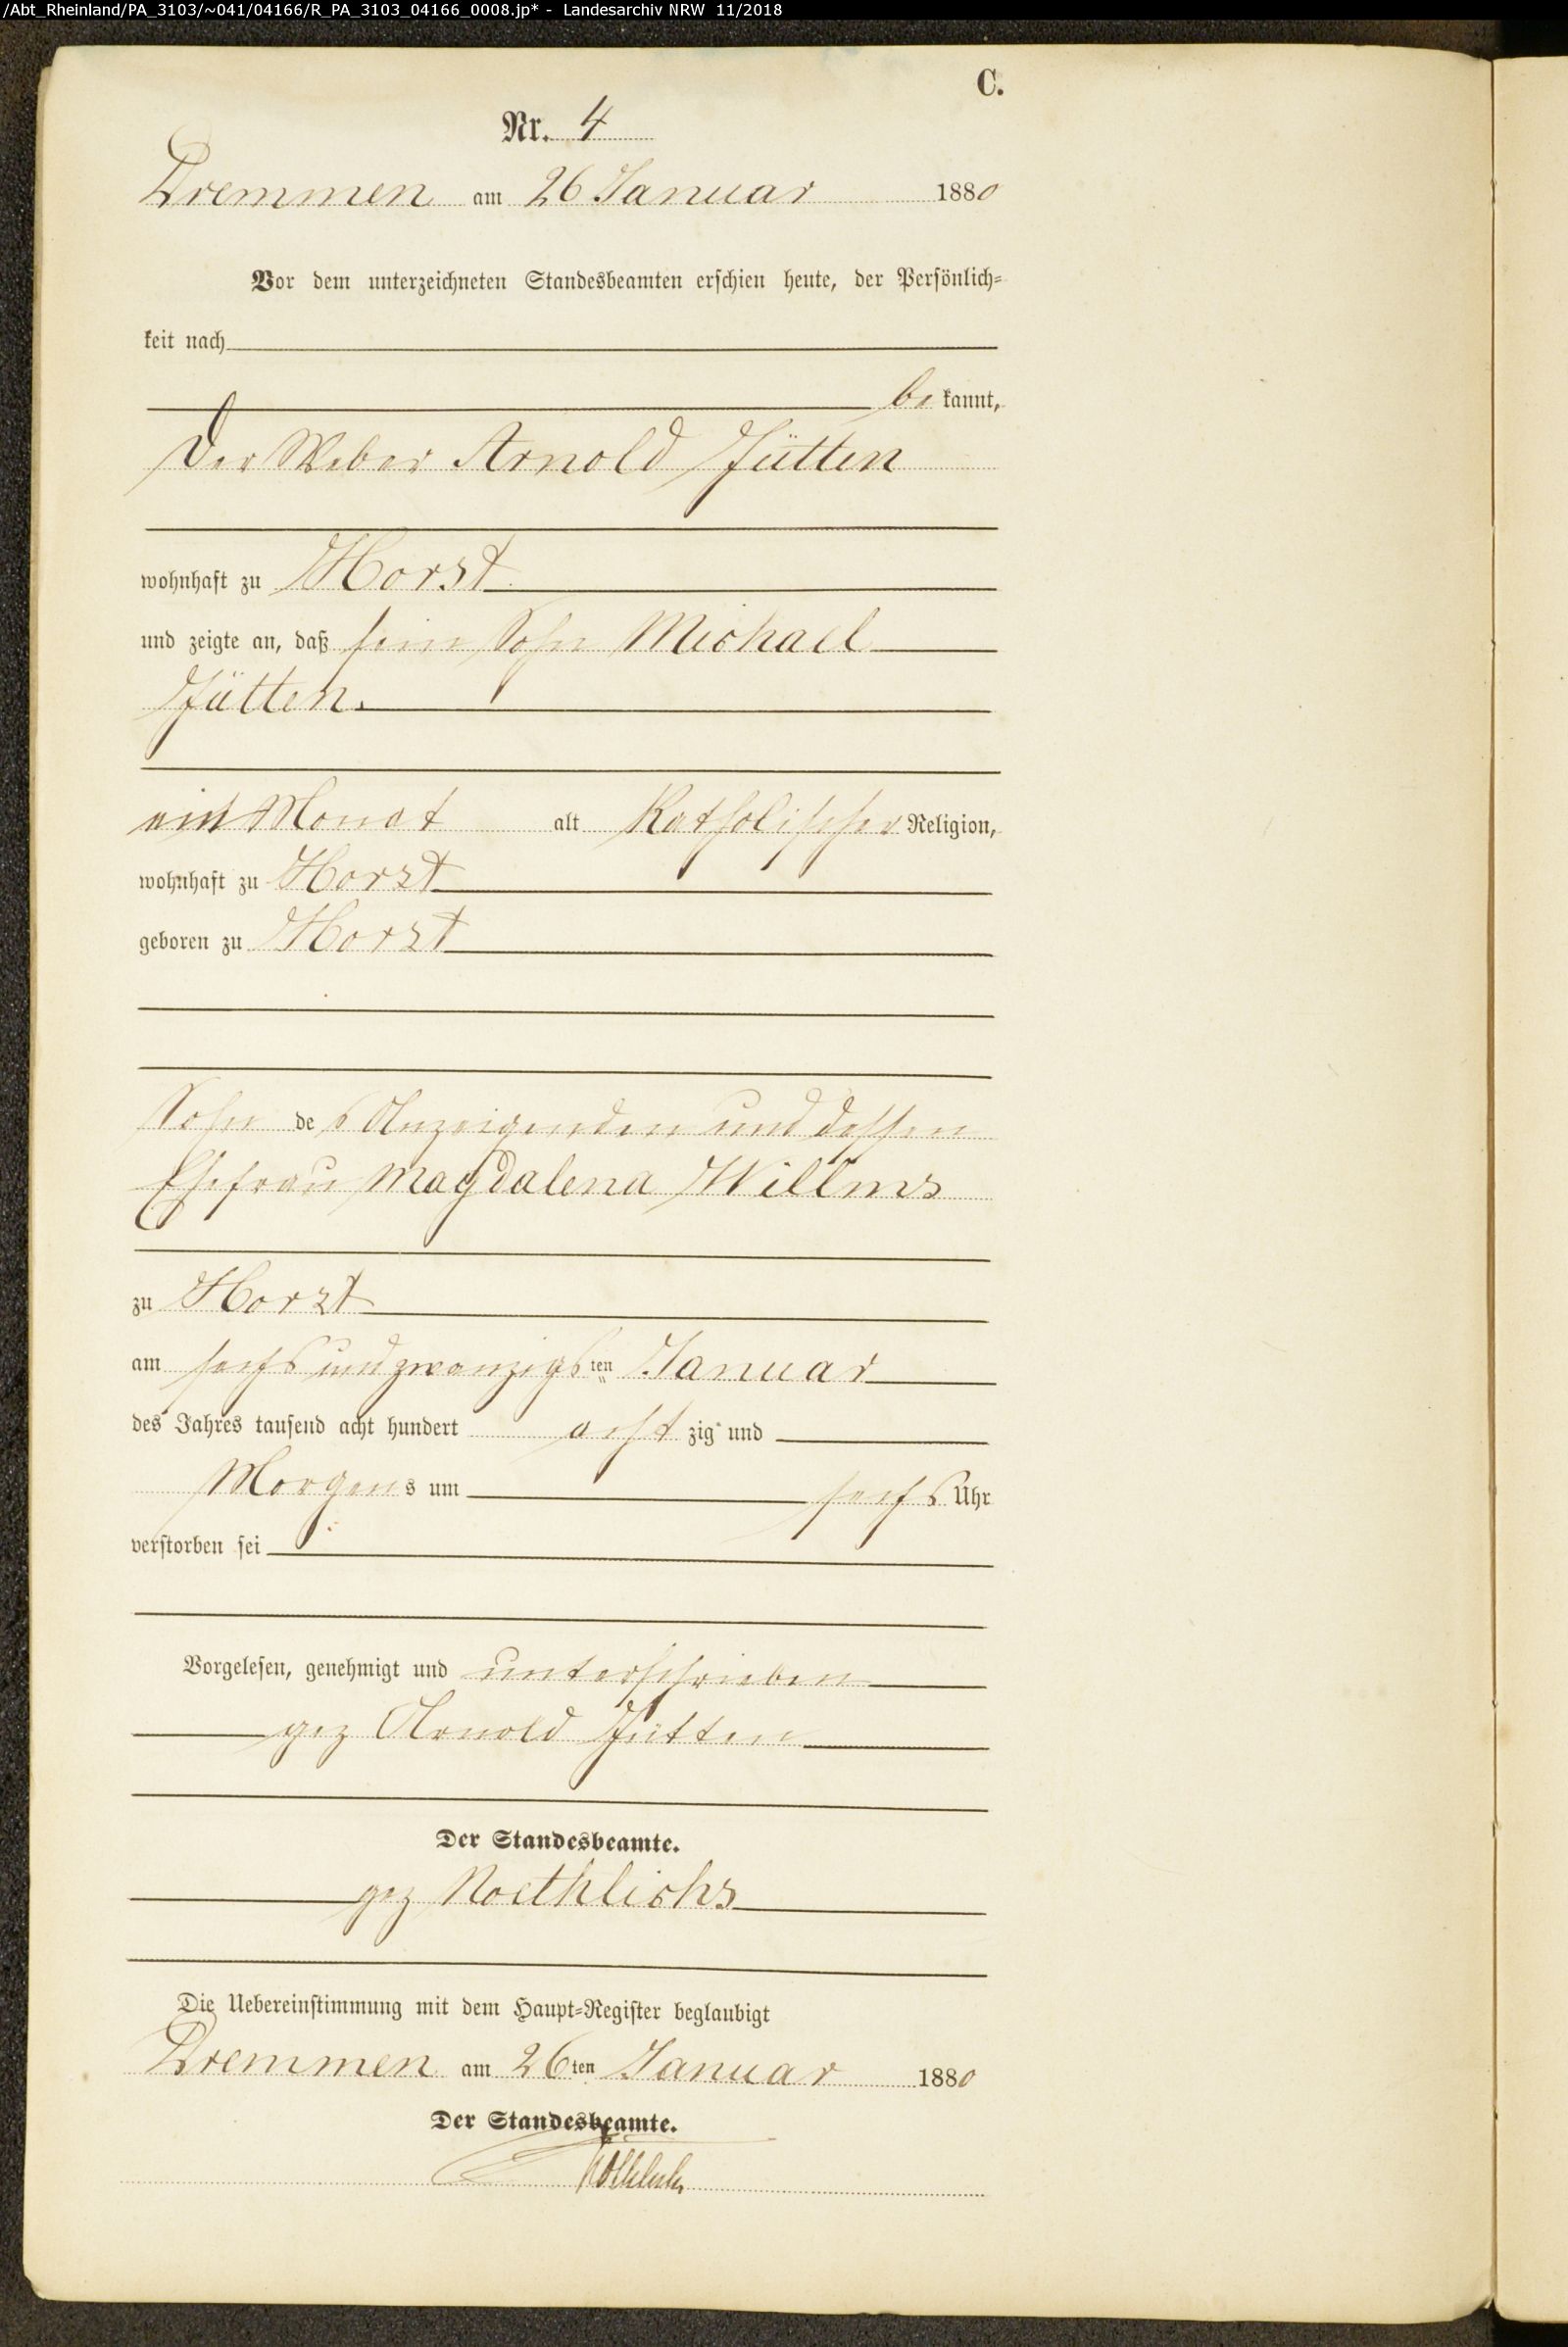 /Abt_Rheinland/PA_3103/~041/04166/R_PA_3103_04166_0008.jp* - Landesarchiv NRW 11/2018
C.
Nr. 4
Dremmen am 26 Januar 1880
Vor dem unterzeichneten Standesbeamten erschien heute, der Persönlich=
keit nach
be kannt,
der Weber Arnold Jütten
wohnhaft zu Horst
und zeigte an, daß sein Sohn Michael
Jütten.
ein Monat alt Katholischer Religion,
wohnhaft zu Horst
geboren zu Horst
Sohn des Anzeigenden und dessen
Ehefrau Magdalena Willms
zu Horst
am sechs und zwanzigsten Januar
des Jahres tausend acht hundert acht zig und
Morgens um sechs Uhr
verstorben sei
Vorgelesen, genehmigt und unterschrieben
gez Arnold Jütten
Der Standesbeamte.
gez Noethlichs
Die Uebereinstimmung mit dem Haupt=Register beglaubigt
Dremmen am 26ten Januar 1880
Der Standesbeamte.
Nöthlichs